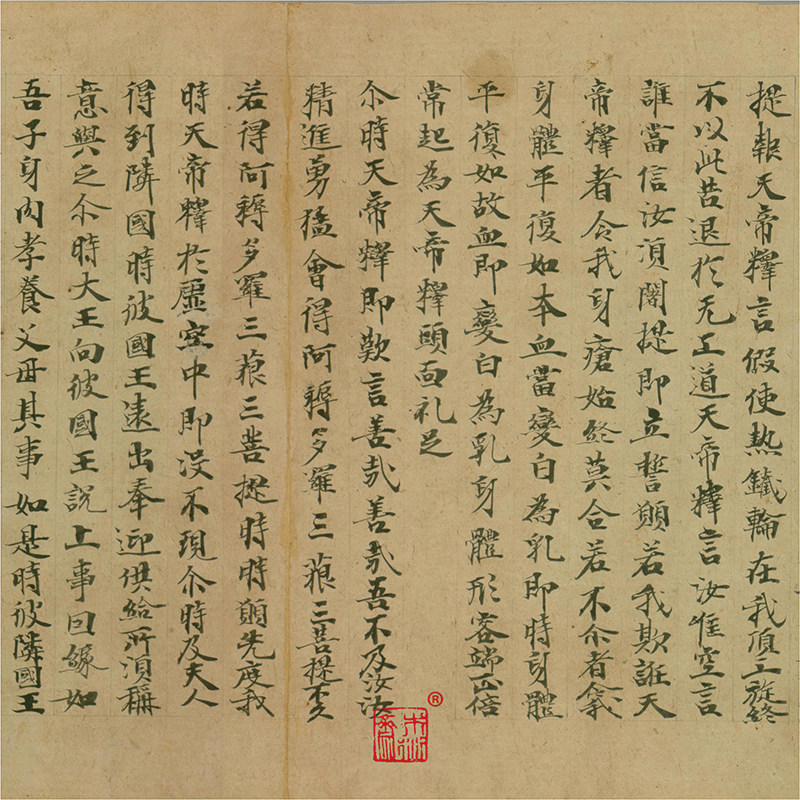 提報天帝釋言假使热鐵輪在我頂上旋終
不以此苦退於无上道天帝釋言汝唯空言
誰當信汝湏闍提即立誓願若我欺誑天
帝釋者令我身瘡始終莫合若不尒者令我
身體平復如本血當變白為乳即時身體
平復如故血即變白為乳身體形容端正倍
常起為天帝釋頭面礼足
尒時天帝釋即歎言善哉善哉吾不及汝汝
精進勇猛會得阿耨多羅三藐三菩提不久
若得阿耨多羅三藐三菩提時時願先度我
時天帝釋於虛空中即沒不現尒時及夫人
得到隣國時彼國王遠出奉迎供給所湏稱
意與之尒時大王向彼國王說上事因緣如
吾子身肉孝養父母其事如是時彼隣國王
®